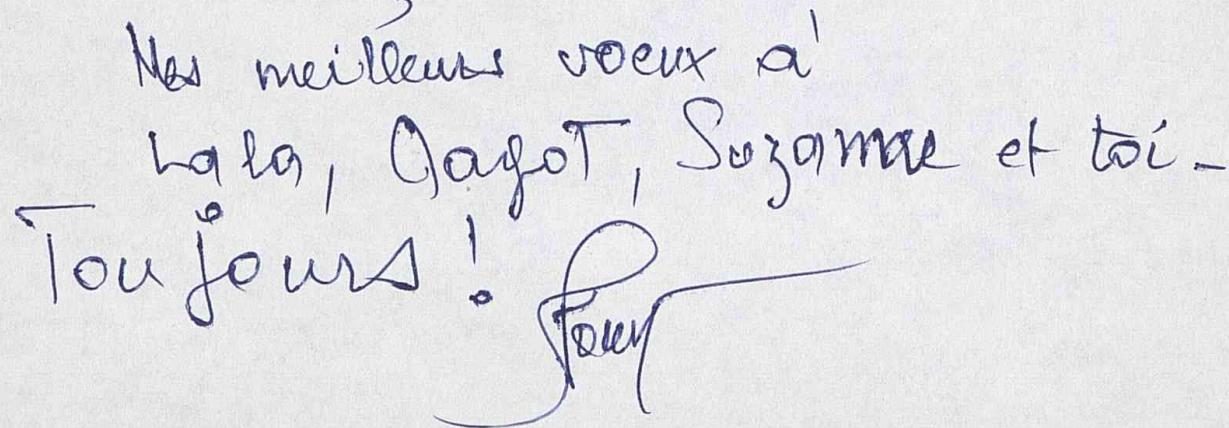 Mes meilleurs voeux à
Lala, Gagot, Suzanne et toi -
Toujours !